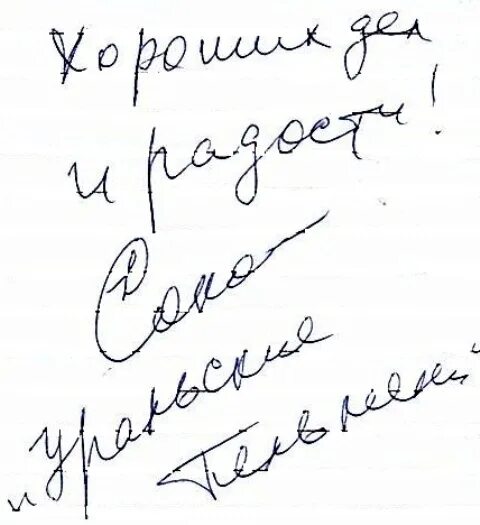 Хороших дел
и радости!
"Уральские
Пельмени"